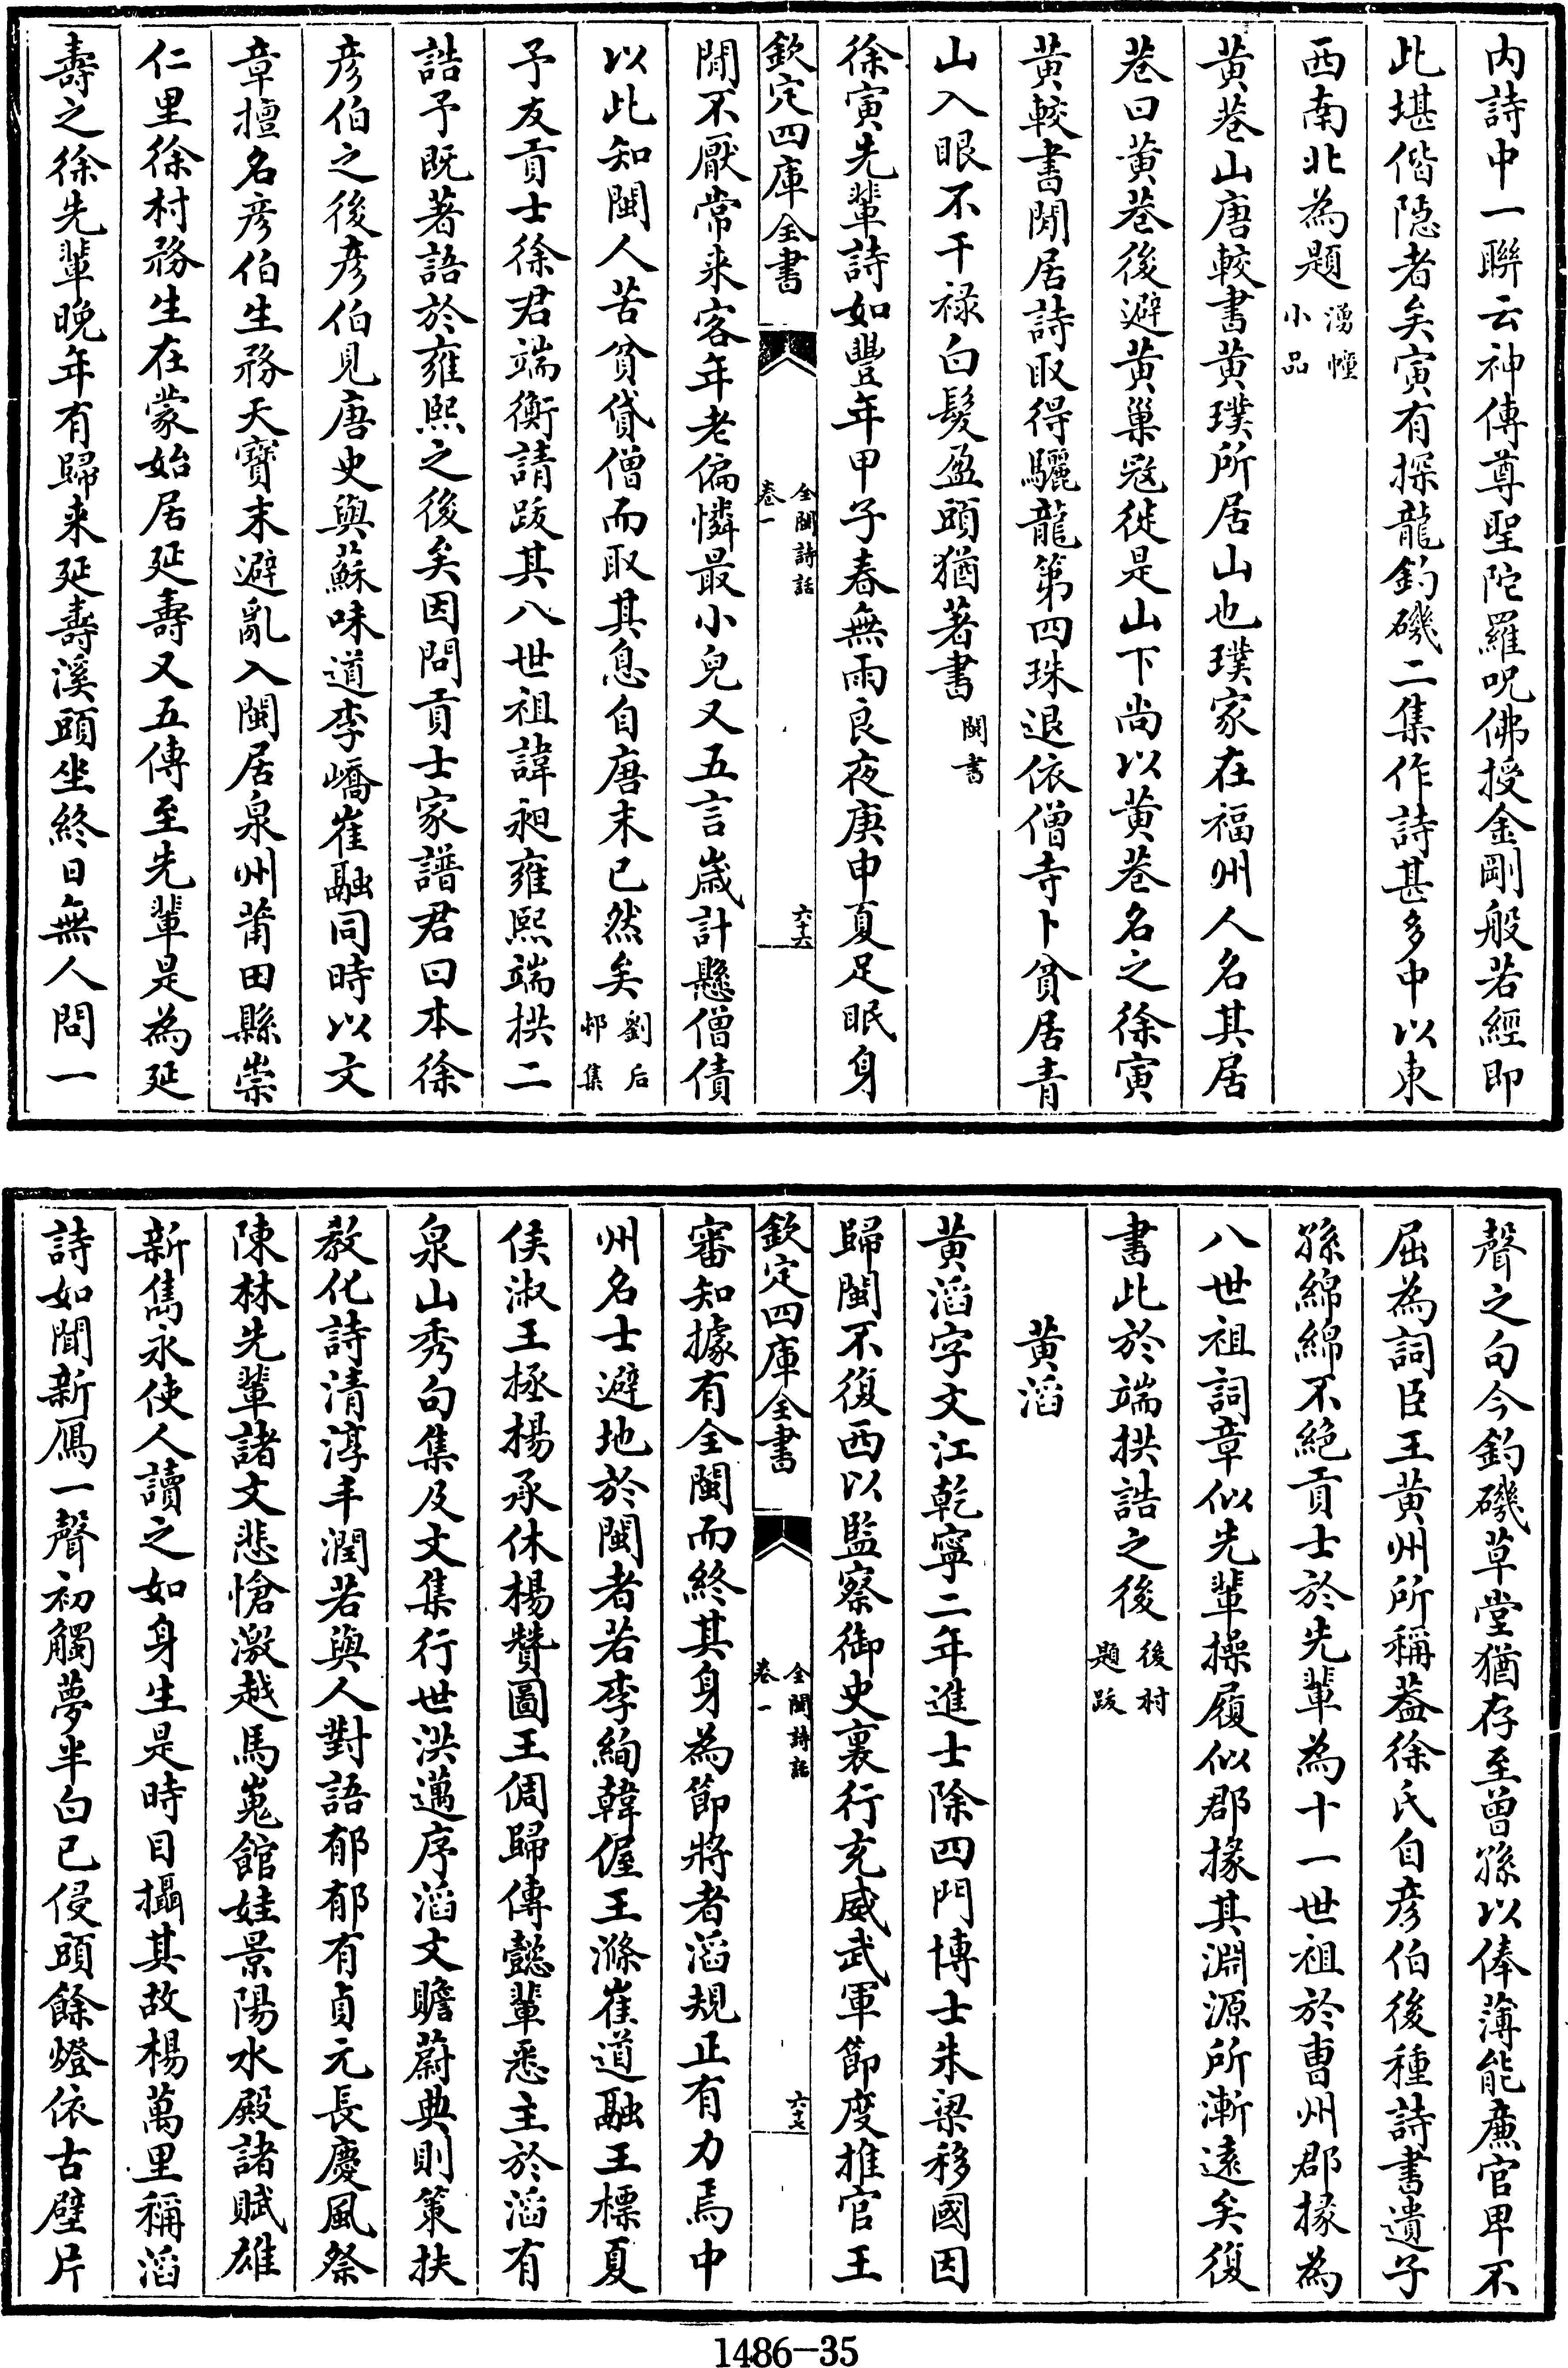 内詩中一聯云神傳尊聖陀羅呪佛授金剛般若經即
此堪偕隱者矣寅有探龍釣磯二集作詩甚多中以東
西南北為題湧幢小品
黃巷山唐較書黃璞所居山也璞家在福州人名其居
巷曰黃巷後避黃巢冦徙是山下尚以黃巷名之徐寅
黃較書閒居詩取得驪龍第四珠退依僧寺卜貧居青
山入眼不干祿白髮盈頭猶著書閩書
徐寅先輩詩如豐年甲子春無雨良夜庚申夏足眠身
欽定四庫全書
全閩詩話
卷一
六十六
閒不厭常来客年老偏憐最小兒又五言嵗計懸僧債
以此知閩人苦貧貸僧而取其息自唐末已然矣劉后邨集
予友貢士徐君端衡請跋其八世祖諱昶雍熙端拱二
誥予既著語於雍熙之後矣因問貢士家譜君曰本徐
彦伯之後彦伯見唐史與蘇味道李嶠崔融同時以文
章擅名彦伯生務天寶末避亂入閩居泉州莆田縣崇
仁里徐村務生在蒙始居延壽又五傳至先輩是為延
壽之徐先輩晚年有歸来延壽溪頭坐終日無人問一
聲之句今釣磯草堂猶存至曽孫以俸薄能亷官卑不
屈為詞臣王黃州所稱葢徐氏自彦伯後種詩書遺子
孫綿綿不絶貢士於先輩為十一世祖於曹州郡掾為
八世祖詞章似先輩操履似郡掾其淵源所漸逺矣復
書此於端拱誥之後後村題跋
黃滔
黃滔字文江乾寧二年進士除四門博士朱梁移國因
歸閩不復西以監察御史裏行充威武軍節度推官王
欽定四庫全書
全閩詩話
卷一
六十七
審知據有全閩而終其身為節將者滔規正有力焉中
州名士避地於閩者若李絢韓偓王滌崔道融王標夏
侯淑王拯楊承休楊贊圖王倜歸傳懿輩悉主於滔有
泉山秀句集及文集行世洪邁序滔文贍蔚典則策扶
教化詩清淳丰潤若與人對語郁郁有貞元長慶風祭
陳林先輩諸文悲愴激越馬嵬館娃景陽水殿諸賦雄
新雋永使人讀之如身生是時目攝其故楊萬里稱滔
詩如聞新鴈一聲初觸夢半白已侵頭餘燈依古壁片
1486-35